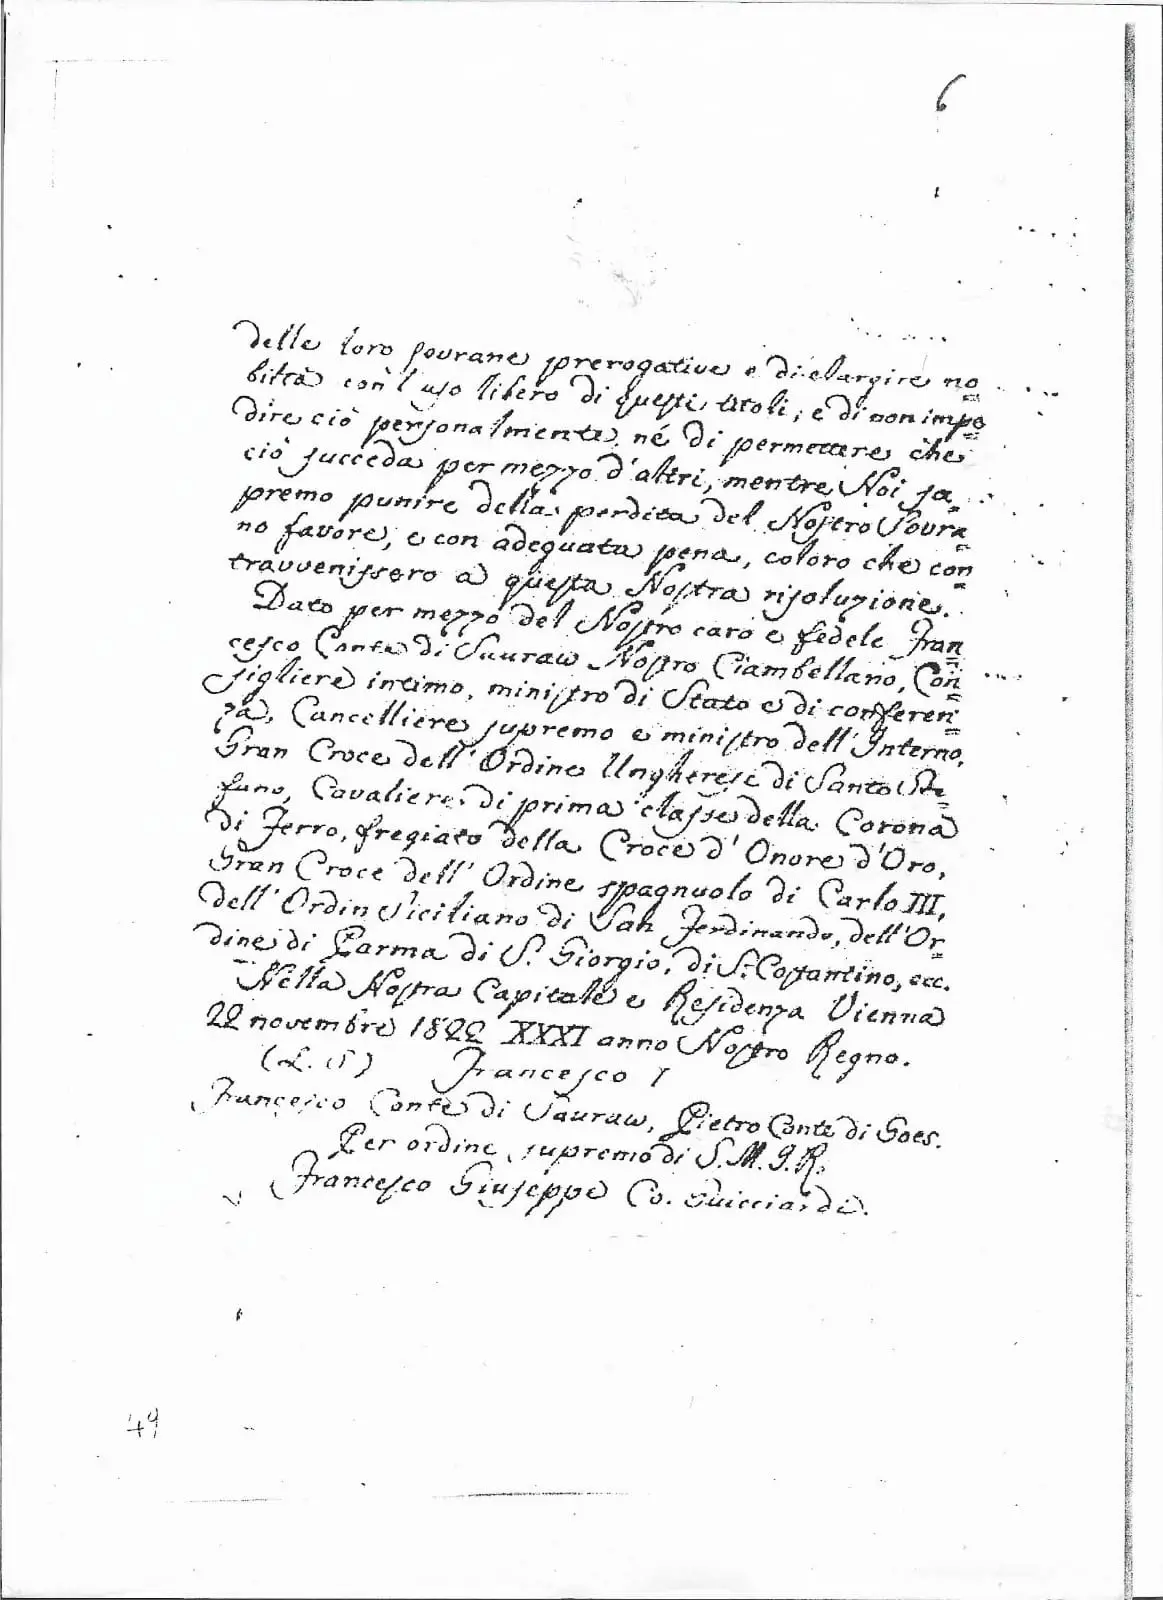 6
delle loro sovrane prerogative e di elargire no=
biltà con l'uso libero di questi titoli, e di non impe=
dire ciò personalmente, né di permettere che
ciò succeda per mezzo d'altri, mentre Noi sa=
premo punire della perdita del Nostro Sovra=
no favore, e con adeguata pena, coloro che con=
travvenissero a questa Nostra risoluzione.
Dato per mezzo del Nostro caro e fedele Fran=
cesco Conte di Sauraw Nostro Ciambellano, Con=
sigliere intimo, ministro di Stato e di conferen=
za, Cancelliere supremo e ministro dell'Interno,
Gran Croce dell'Ordine Ungherese di Santo Ste=
fano, Cavaliere di prima classe della Corona
di Ferro, fregiato della Croce d'Onore d'Oro,
Gran Croce dell'Ordine spagnuolo di Carlo III,
dell'Ordin Siciliano di San Ferdinando, dell'Or=
dine di Parma di S. Giorgio, di S. Costantino, ecc.
Nella Nostra Capitale e Residenza Vienna
22 novembre 1822 XXXI anno Nostro Regno.
(L. S) Francesco I
Francesco Conte di Sauraw, Pietro Conte di Goes.
Per ordine supremo di S. M. I. R.
Francesco Giuseppe Co. Guicciardi.
49